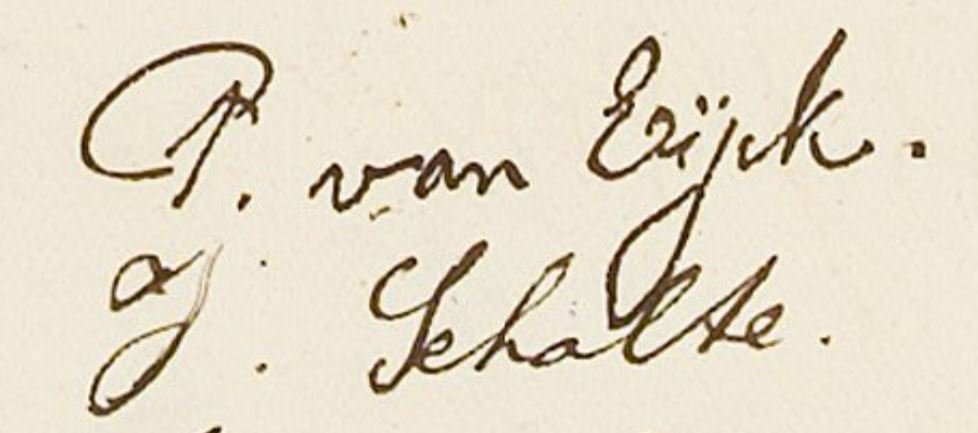 P. van Eijk.
J. Scholte.